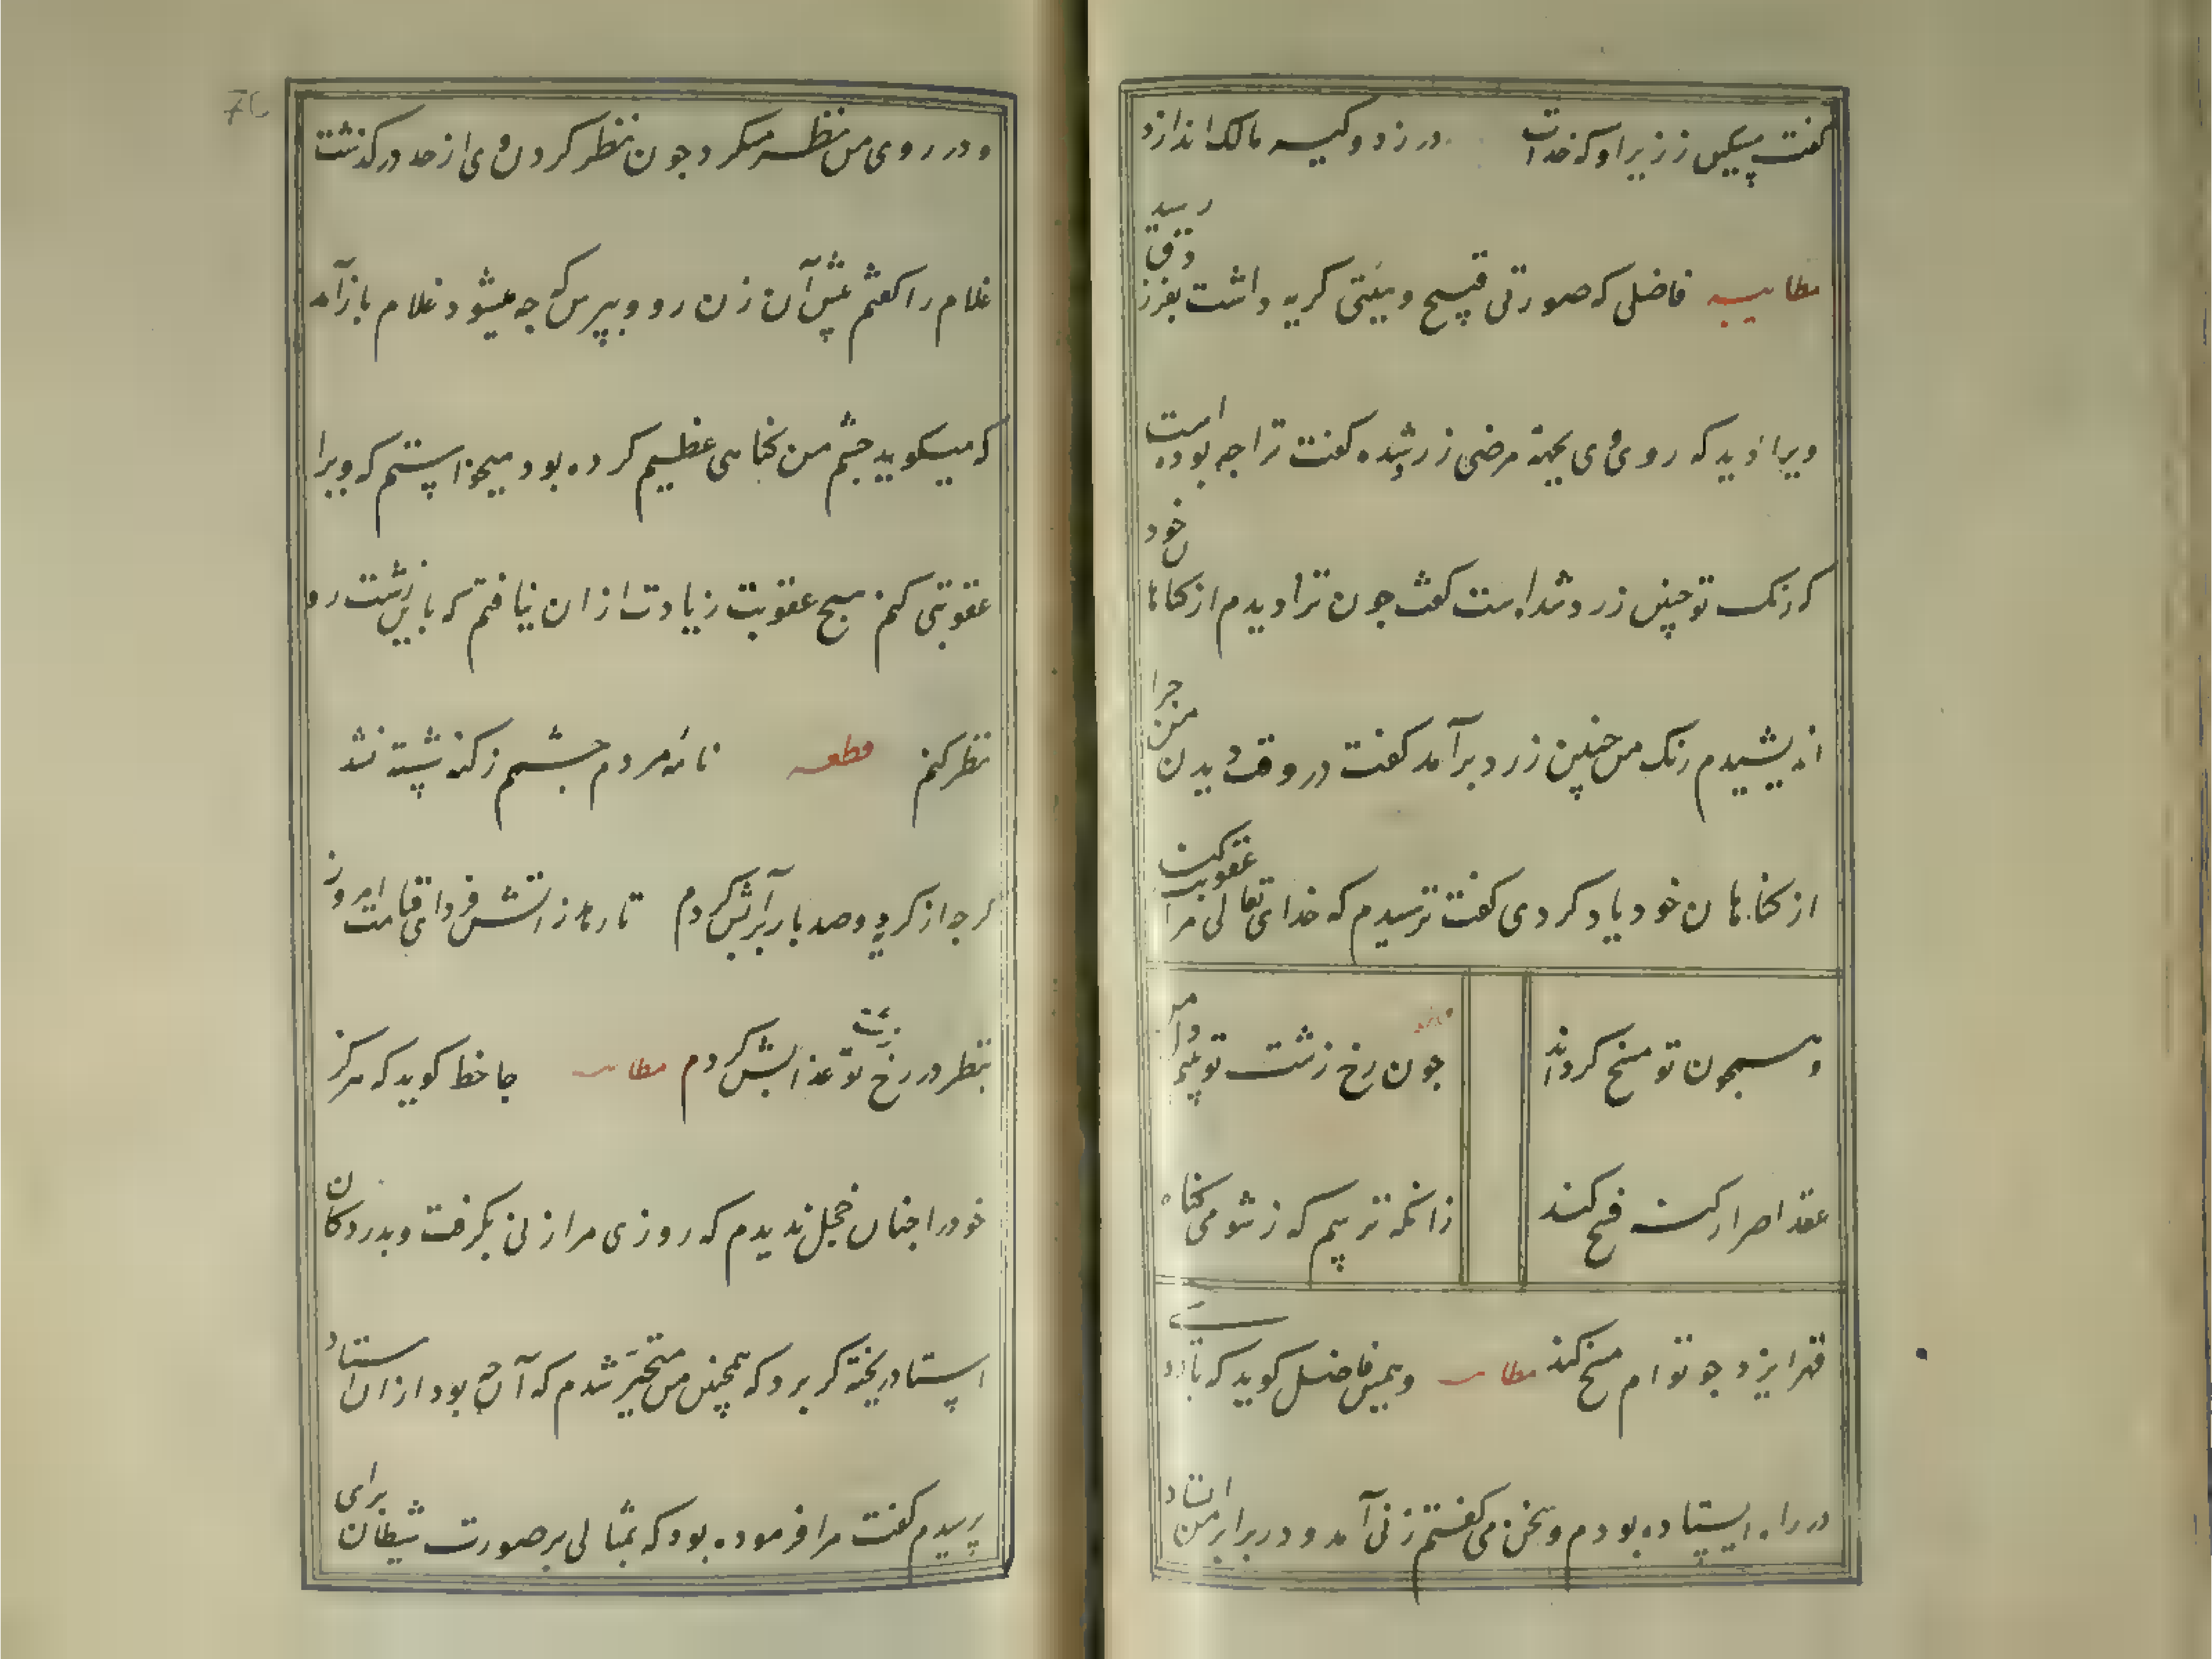 گفت مسکین ز زیر او که خداست در زد و کیسه مالک اندازد
مطایبه فاضلی که صورتی قبیح و هیئتی کریه داشت بفرزدق رسید
ویرا دید که روی وی بجهة مرضی زرد شده گفت ترا چه بوده است
که رنک تو چنین زرد شده است گفت جون ترا دیدم از کناهان خود
اندیشیدم رنک من چنین زرد برآمد گفت در وقت دیدن من چرا
از کناهان خود یاد کردی گفت ترسیدم که خدای تعالی مرا عقوبت کند
و همچون تو مسخ کرداند
جون رخ زشت تو بینم
عقد اصرار کنه فسخ کند
زانکه ترسم که ز شومی کناه
قهر ایزد جو توام مسخ کند مطایبه و همین فاضل کوید که با
در راه ایستاده بودم و سخن می گفتم زنی آمد و در برابر من استاد
و در روی من نظر میکرد جون نظر کردن وی از حد درکذشت
غلام را گفتم پیش آن زن رو و بپرس که جه میشود غلام باز آمد
که میکوید جشم من کناهی عظیم کرده بود میخواستم که ویرا
عقوبتی کنم هیچ عقوبت زیادت از ان نیافتم که باین زشت رو
نظر کنم قطعه نامه مردم جشم ز کنه شسته نشد
کرجه از کریه دوصد بار برآبش کردم تا رهد ز آتش فردای قیامت امروز
بنظر در رخ زشت تو عذابش کردم مطایبه جاحظ کوید که هرکز
خود را جنان خجل ندیدم که روزی مرا زنی بگرفت و بدر دکان
استاد ریخته کر برد که همچنین من متحیر شدم که آن چه بود از ان استاد
پرسیدم گفت مرا فرموده بود که تمثالی بر صورت شیطان برای